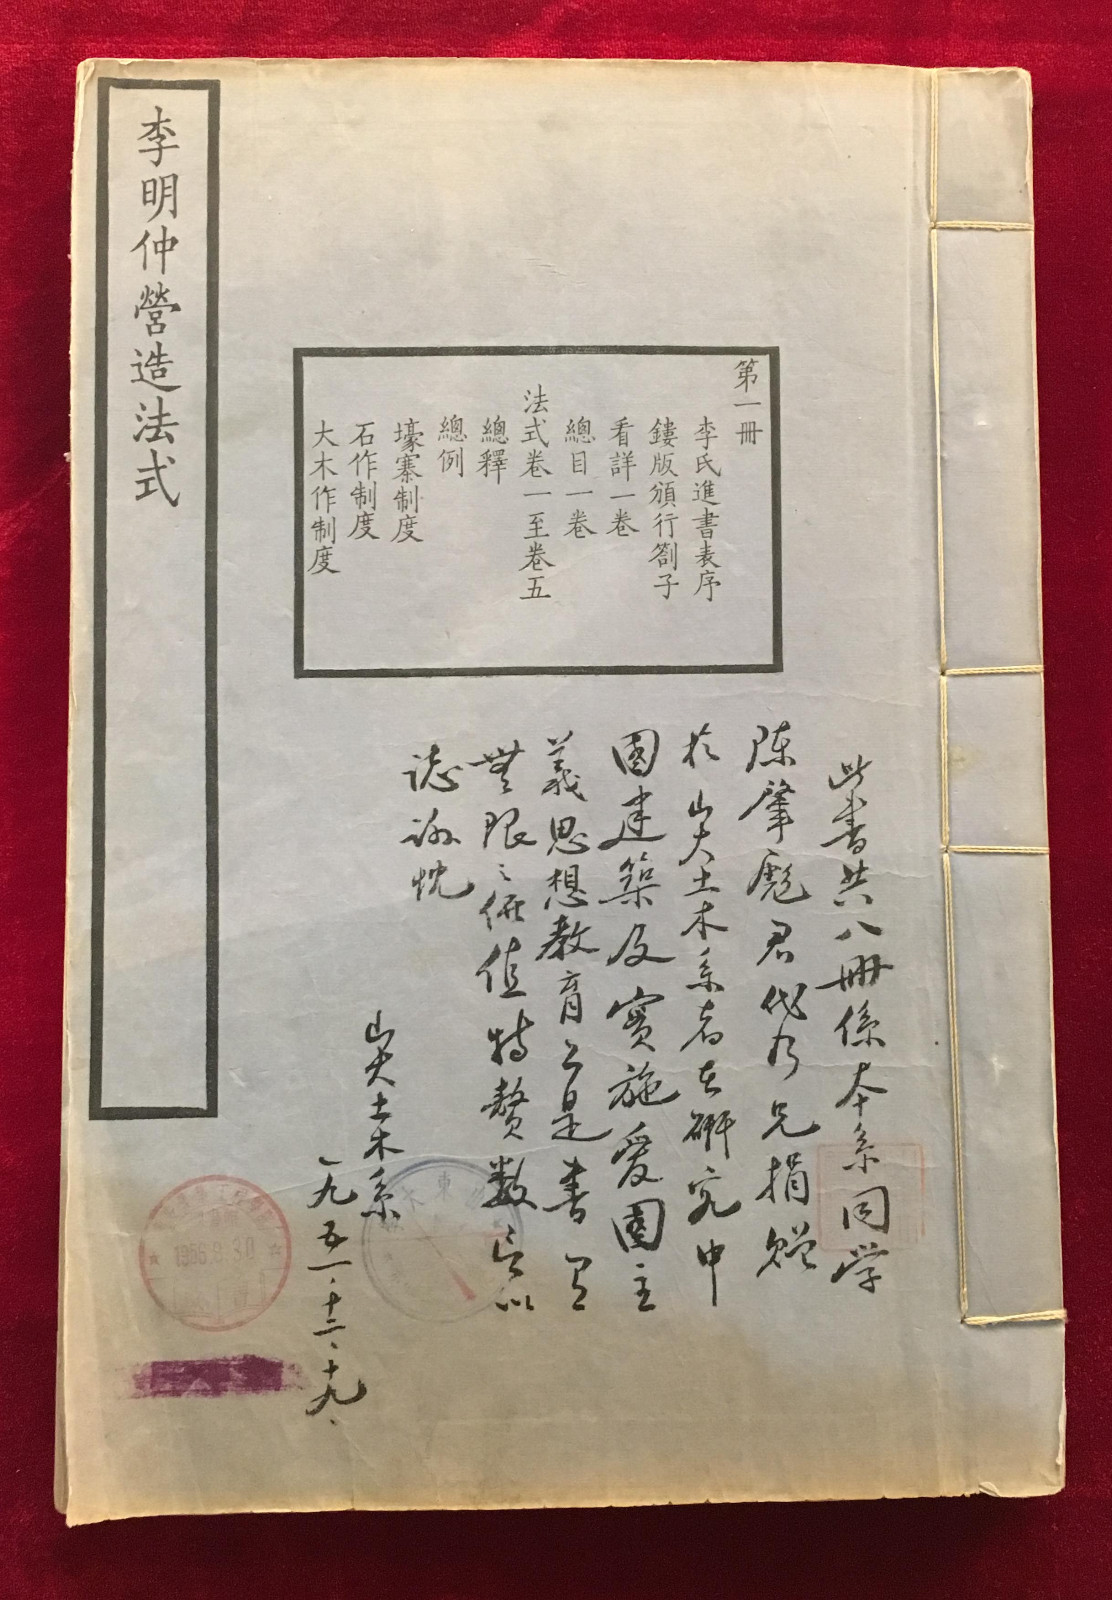 李明仲營造法式
第一冊
李氏進書表序
鏤版頒行劄子
看詳一卷
總目一卷
法式卷一至卷五
總釋
總例
壕寨制度
石作制度
大木作制度
此書共八冊係本系同学
陈肇彪君代乃兄捐贈
於山大土木系者在研究中
國建築及實施爱國主
義思想教育上是書具
無限之價值特贅数言以
誌谢忱
山大土木系
一九五一.十二.十九.
1956.9.30